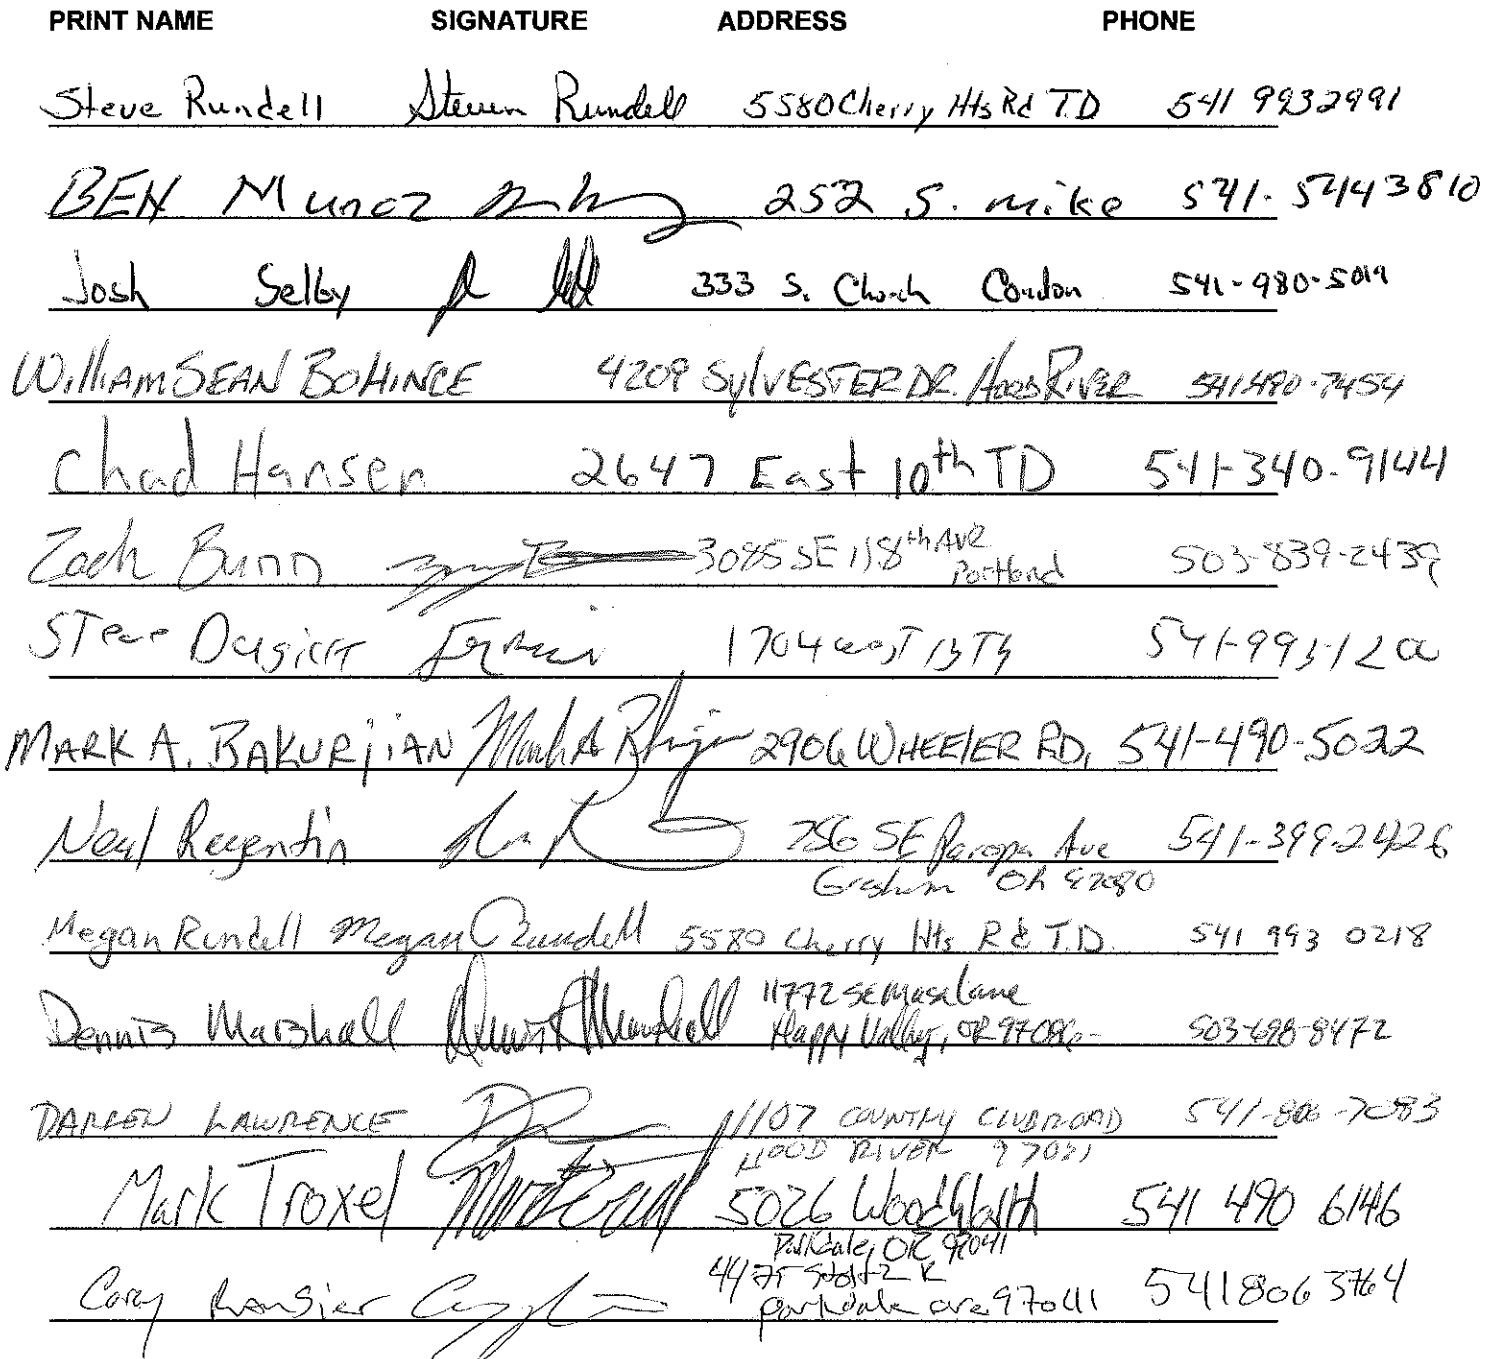 PRINT NAME SIGNATURE ADDRESS PHONE
Steve Rundell Steven Rundell 5580 Cherry Hts Rd T.D 541 9932991
BEN Munoz 252 S. mike 541-5443810
Josh Selby 333 S. Church Condon 541-980-5019
William SEAN BOHINCE 4209 SylVESTER DR. HOOD RIVER 541490-7454
Chad Hansen 2647 East 10th TD 541-340-9144
Zach Bunn 3085 SE 118th Ave 503-839-2439
Portland
Steve 1704 east 13Th
MARK A. BAKURjiAN Mark A 2906 WHEELER RD, 541-490-5022
Neal Regentin 756 SE Ave 541-399-2426
Megan Rundell Megan Rundell 5580 Cherry Hts Rd T.D. 541 993 0218
11772 SE Lane
Dennis Marshall Dennis Marshall Happy Valley, OR 97086 503-698-8472
DARREN LAWRENCE 1107 COUNTRY CLUB ROAD 541-806-7083
HOOD RIVER 97031
Mark Troxel Mark Troxel 5026 Woodworth 541 490 6146
Parkdale, OR 97041
Corey parkdale ore 97041 541 806 3764